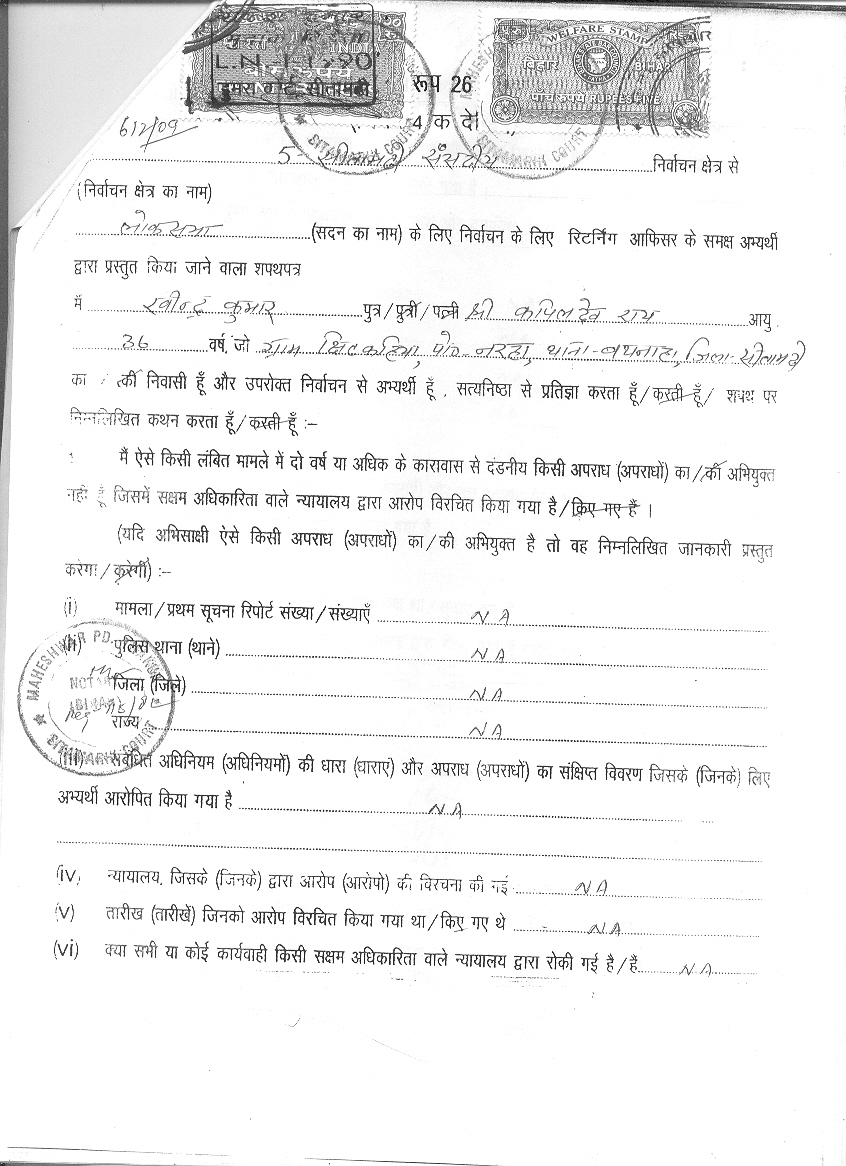 L.N. 11/80
डुमरा कोर्ट, सीतामढ़ी
WELFARE STAMP
बिहार BIHAR
पाँच रुपये RUPEES FIVE
SITAMARHI COURT
SITAMARHI COURT
रूप 26
4 क दे
6/2/09
5- सीतामढ़ी संसदीय निर्वाचन क्षेत्र से
(निर्वाचन क्षेत्र का नाम)
लोकसभा (सदन का नाम) के लिए निर्वाचन के लिए रिटर्निंग आफिसर के समक्ष अभ्यर्थी
द्वारा प्रस्तुत किया जाने वाला शपथपत्र
मैं रवीन्द्र कुमार पुत्र/पुत्री/पत्नी श्री कपिलदेव राय आयु
36 वर्ष, जो ग्राम पो०-नरहा, थाना- जिला-सीतामढ़ी
का / की निवासी हूँ और उपरोक्त निर्वाचन से अभ्यर्थी हूँ , सत्यनिष्ठा से प्रतिज्ञा करता हूँ/करती हूँ/ शपथ पर
निम्नलिखित कथन करता हूँ/करती हूँ :–
मैं ऐसे किसी लंबित मामले में दो वर्ष या अधिक के कारावास से दंडनीय किसी अपराध (अपराधों) का/की अभियुक्त
नहीं हूँ जिसमें सक्षम अधिकारिता वाले न्यायालय द्वारा आरोप विरचित किया गया है/किए गए हैं ।
(यदि अभिसाक्षी ऐसे किसी अपराध (अपराधों) का/की अभियुक्त है तो वह निम्नलिखित जानकारी प्रस्तुत
करेगा/करेगी) :–
(i) मामला/प्रथम सूचना रिपोर्ट संख्या/संख्याएँ NA
(ii) पुलिस थाना (थाने) NA
जिला (जिले) NA
राज्य NA
MAHESHWAR PD.
NOTARY
(BIHAR)
SITAMARHI COURT
(iii) संबंधित अधिनियम (अधिनियमों) की धारा (धाराए) और अपराध (अपराधों) का संक्षिप्त विवरण जिसके (जिनके) लिए
अभ्यर्थी आरोपित किया गया है NA
(iv) न्यायालय, जिसके (जिनके) द्वारा आरोप (आरोपो) की विरचना की गई NA
(v) तारीख (तारीखें) जिनको आरोप विरचित किया गया था/किए गए थे NA
(vi) क्या सभी या कोई कार्यवाही किसी सक्षम अधिकारिता वाले न्यायालय द्वारा रोकी गई है/हैं NA